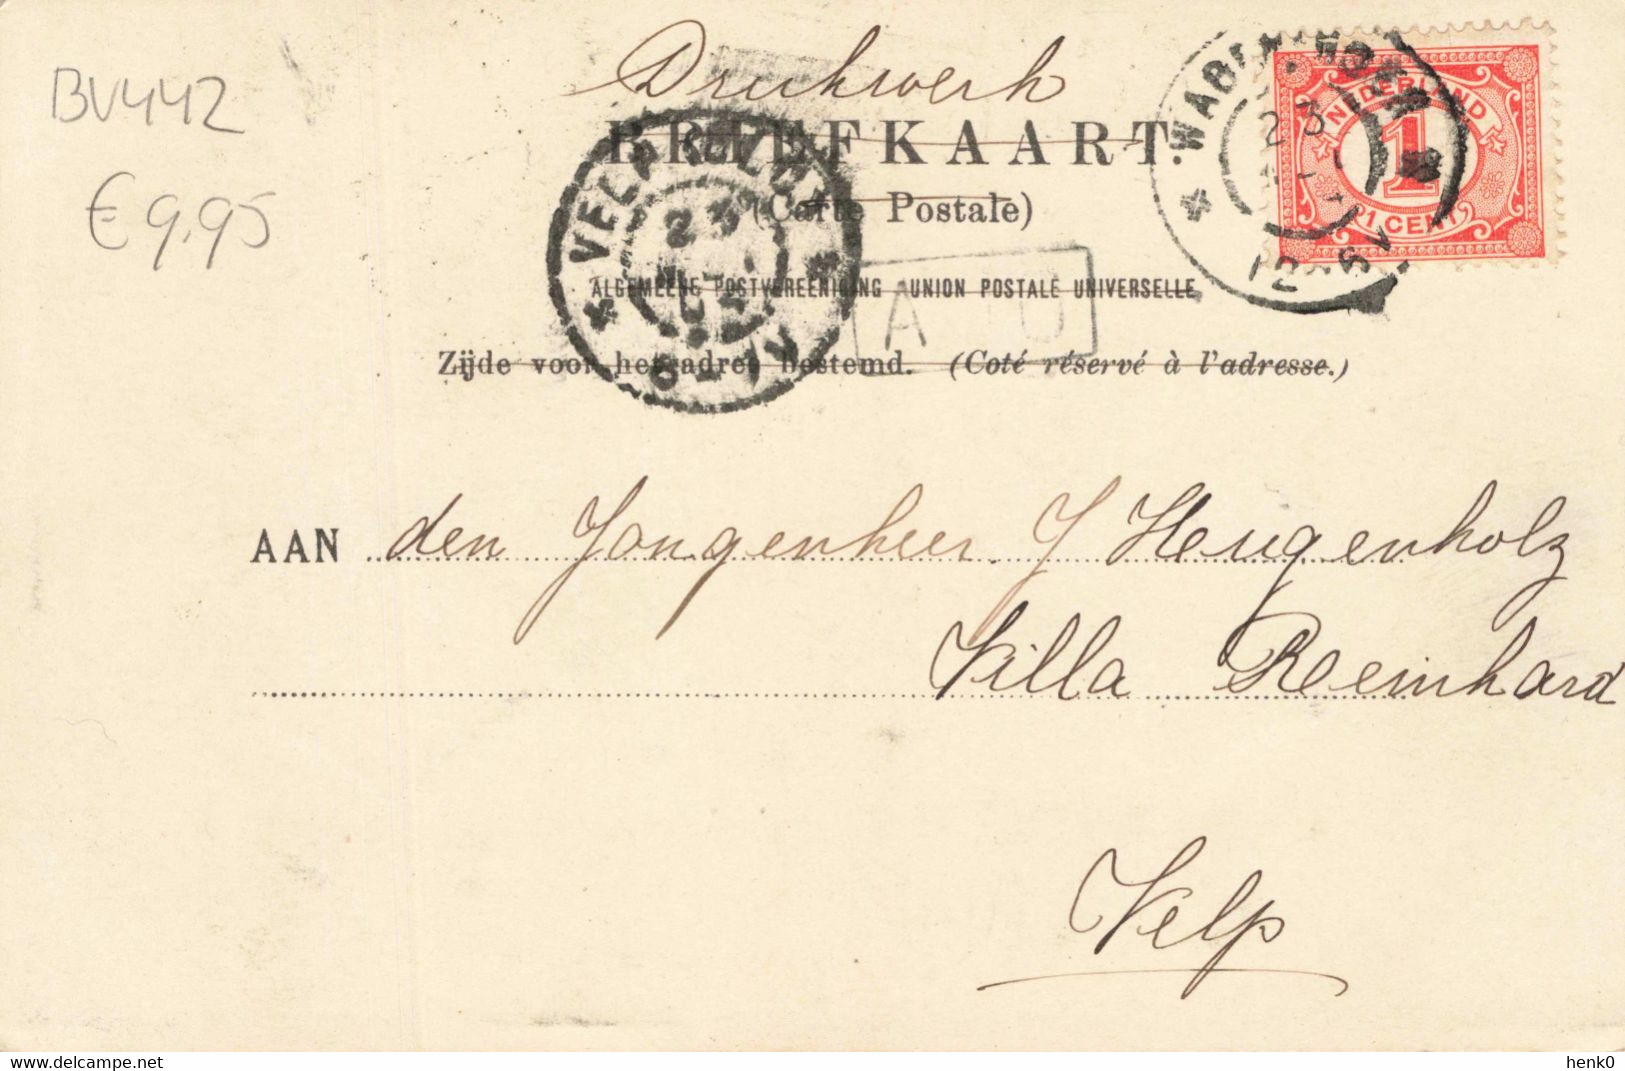 BV442
€ 9,95
Drukwerk
BRIEFKAART.
(Carte Postale)
ALGEMEENE POSTVEREENIGING UNION POSTALE UNIVERSELLE
Zijde voor het adres bestemd. (Coté réservé à l'adresse.)
NEDERLAND
1
1 CENT
23
VELP
23
AAN den Jongenheer J Heugenholz
Villa Reinhard
Velp
delcampe.net
henk0